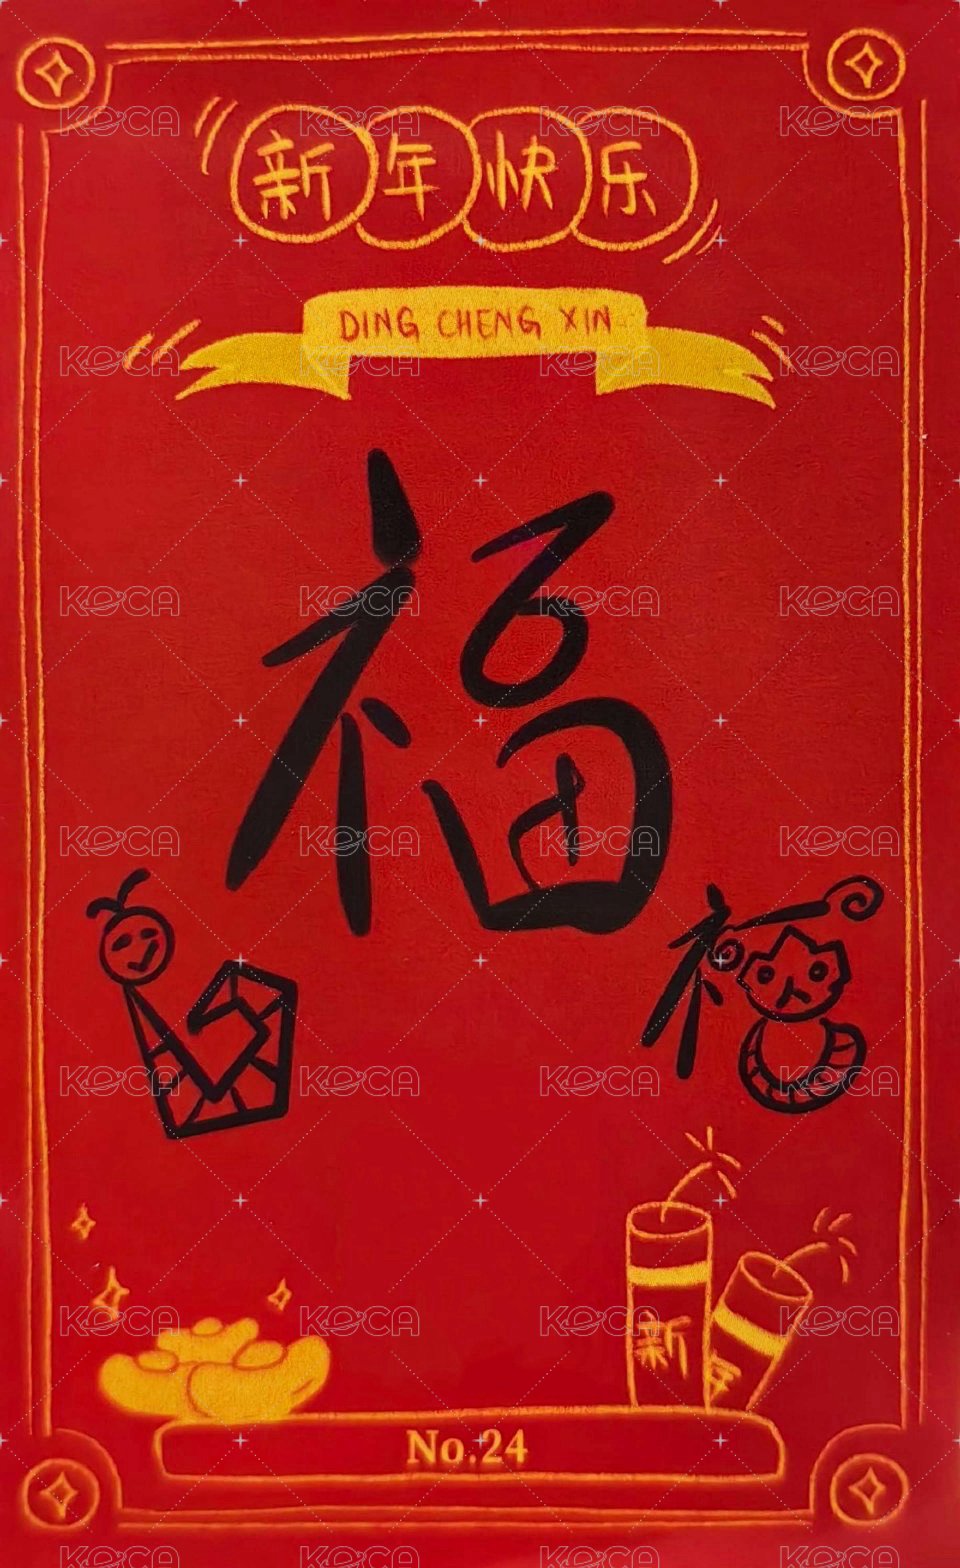 新年快乐
DING CHENG XIN
福
福
新
年
No.24
KOCA